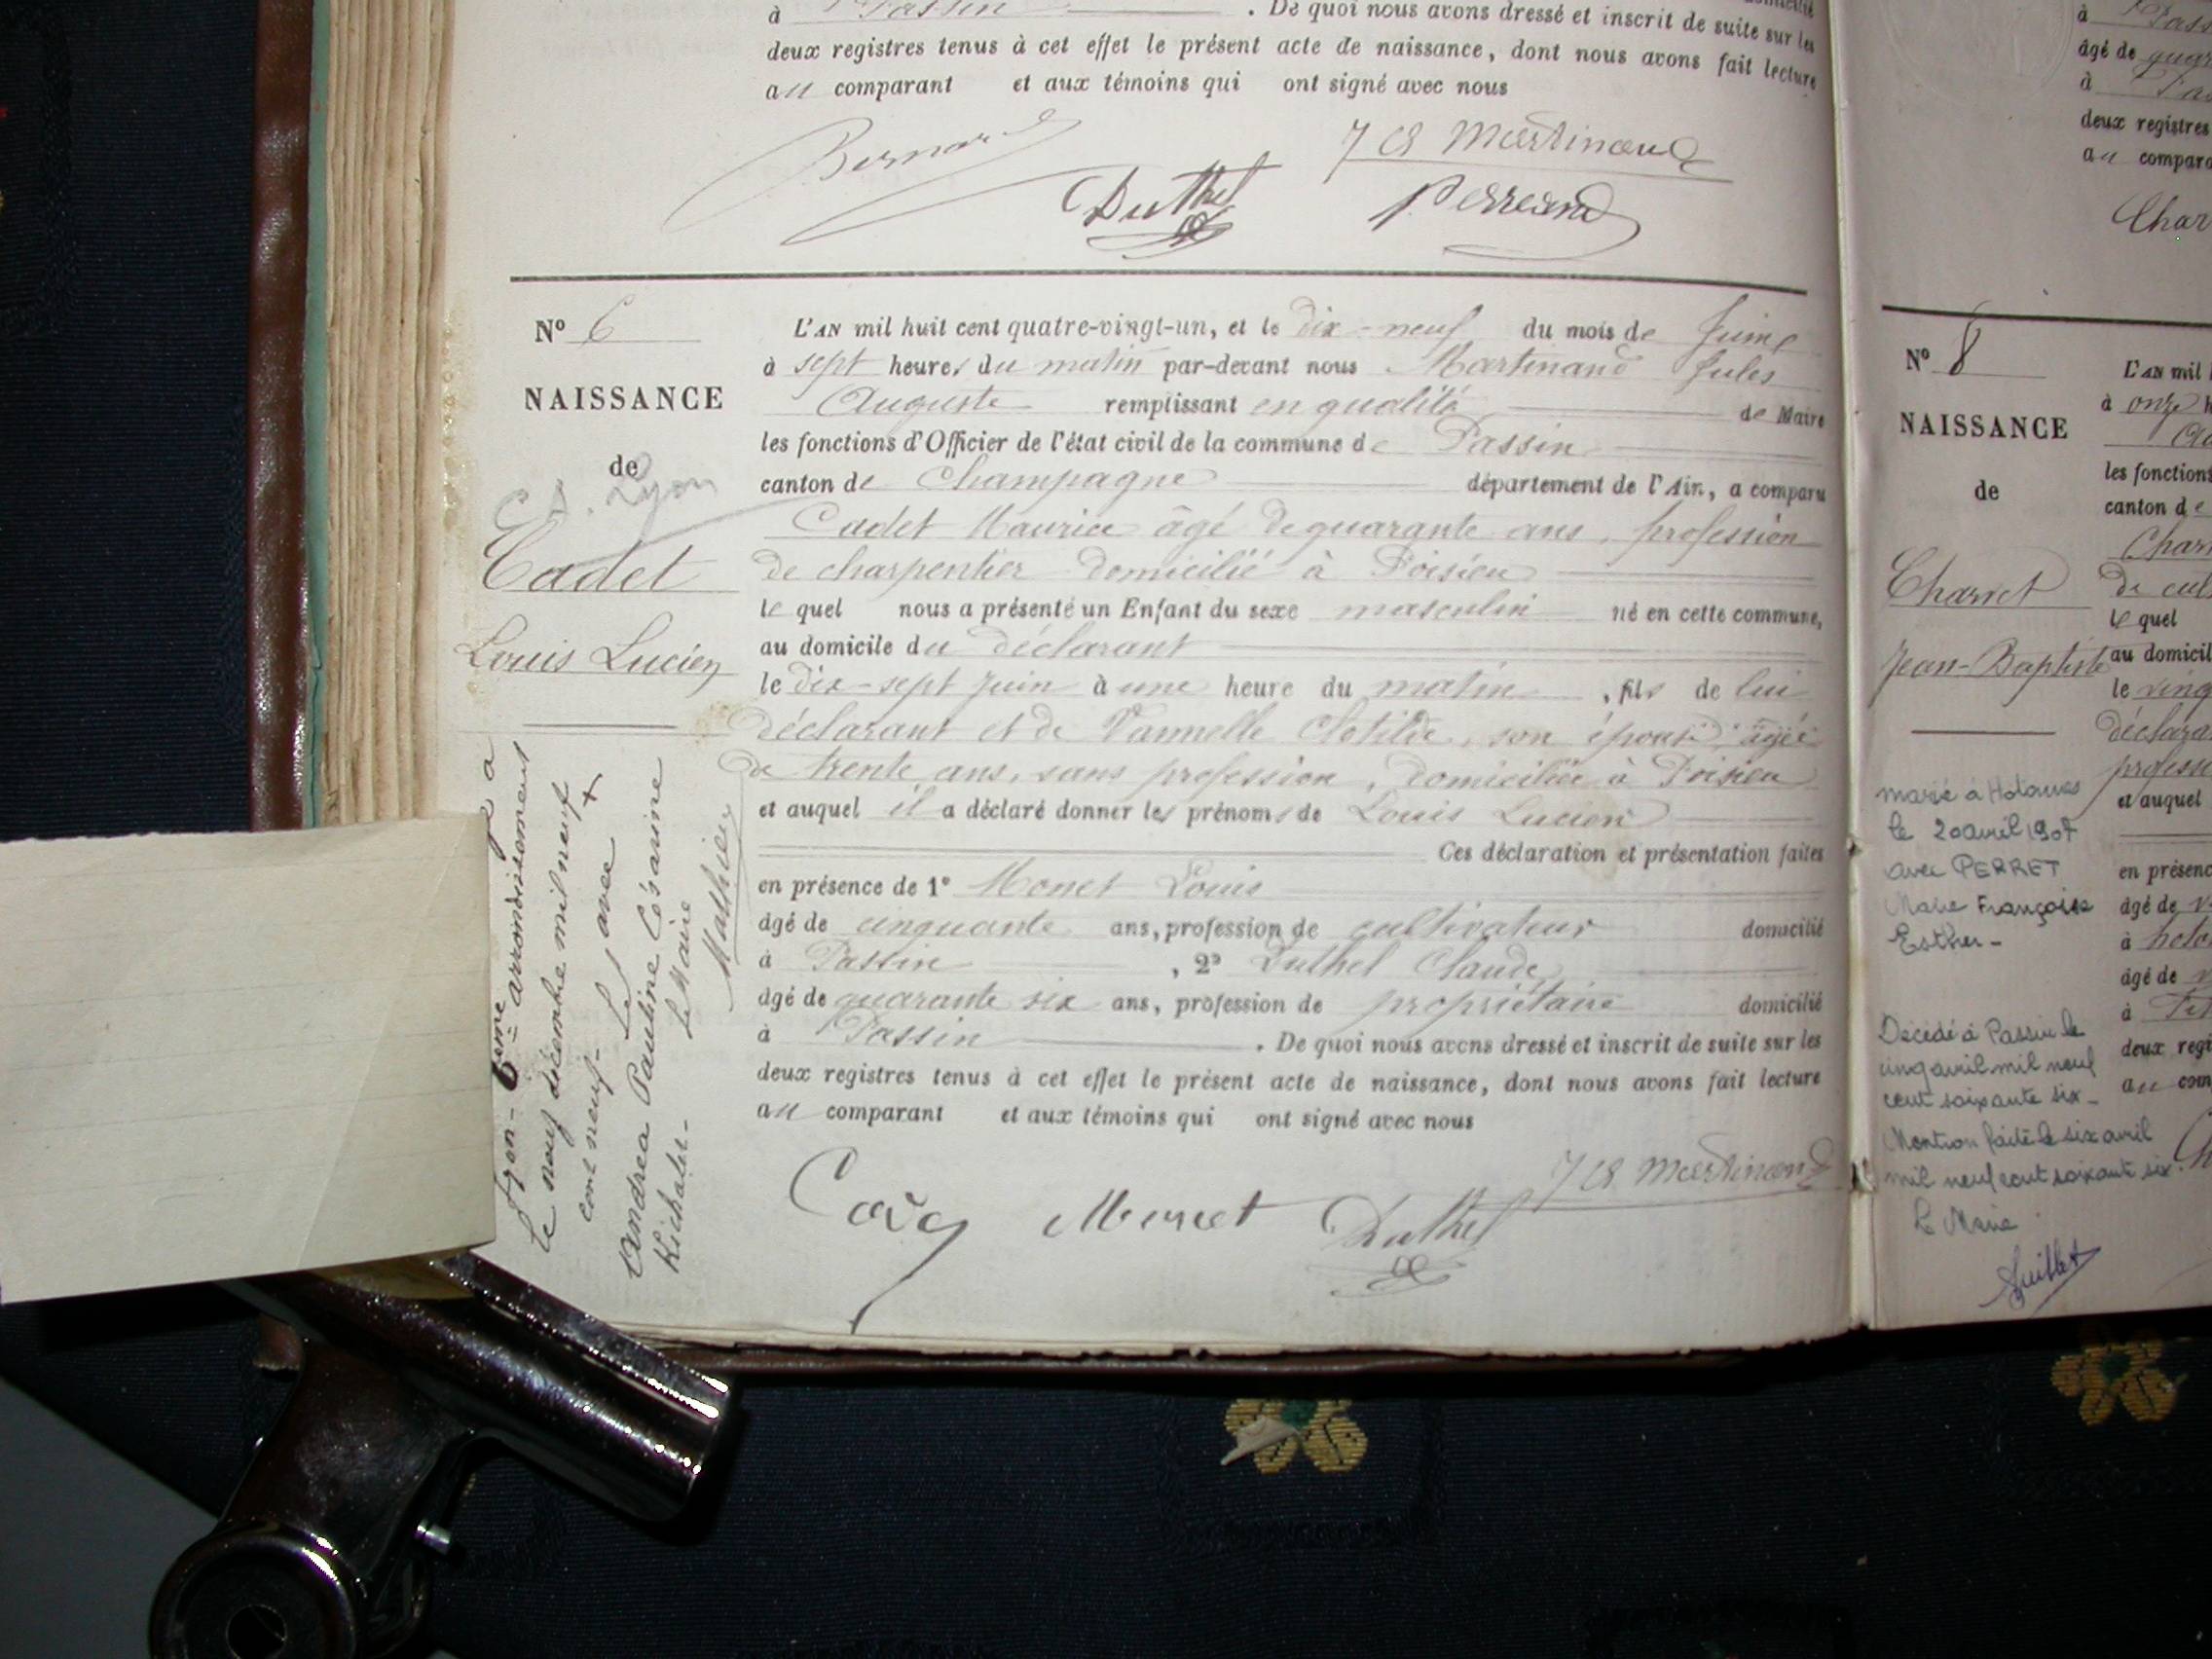 à Passin . De quoi nous avons dressé et inscrit de suite sur les
deux registres tenus à cet effet le présent acte de naissance, dont nous avons fait lecture
au comparant et aux témoins qui ont signé avec nous
Bernard
J A Martinand
Duthel
Perreand
N° 6
NAISSANCE
de
Lyon
Cadet
Louis Lucien
L'AN mil huit cent quatre-vingt-un, et le dix-neuf du mois de Juin
à sept heures du matin par-devant nous Martinand Jules
Auguste remplissant en qualité de Maire
les fonctions d'Officier de l'état civil de la commune de Passin
canton de Champagne département de l'Ain, a comparu
Cadet Maurice âgé de quarante ans, profession
de charpentier domicilié à Poisieu
le quel nous a présenté un Enfant du sexe masculin né en cette commune,
au domicile du déclarant
le dix-sept juin à une heure du matin, fils de lui
déclarant et de Vannelle Clotilde, son épouse, âgée
de trente ans, sans profession, domiciliée à Poisieu
et auquel il a déclaré donner les prénoms de Louis Lucien
Ces déclaration et présentation faites
en présence de 1° Monet Louis
âgé de cinquante ans, profession de cultivateur domicilié
à Passin , 2° Duthel Claude
âgé de quarante six ans, profession de propriétaire domicilié
à Passin . De quoi nous avons dressé et inscrit de suite sur les
deux registres tenus à cet effet le présent acte de naissance, dont nous avons fait lecture
au comparant et aux témoins qui ont signé avec nous
Monet Duthel J A Martinand
Lyon - 6eme arrondissement
le neuf décembre mil neuf
cent neuf - avec
Andrea Pauline Césarine
Le Maire
Mathieu
à Pass
âgé de quar
à Pas
deux registres
au compara
Char
N° 8
NAISSANCE
de
Charvet
Jean-Baptiste
marié à Hotonnes
le 20 avril 1907
avec PERRET
Marie Françoise
Esther -
Décédé à Passin le
cinq avril mil neuf
cent soixante six -
Mention faite le six avril
mil neuf cent soixante six.
Le Maire
Juillet
L'AN mil
à onze h
les fonctions
canton de
Char
de cul
le quel
au domicil
le ving
déclara
profess
et auquel
en présenc
âgé de
à
âgé de
à
deux regi
au com